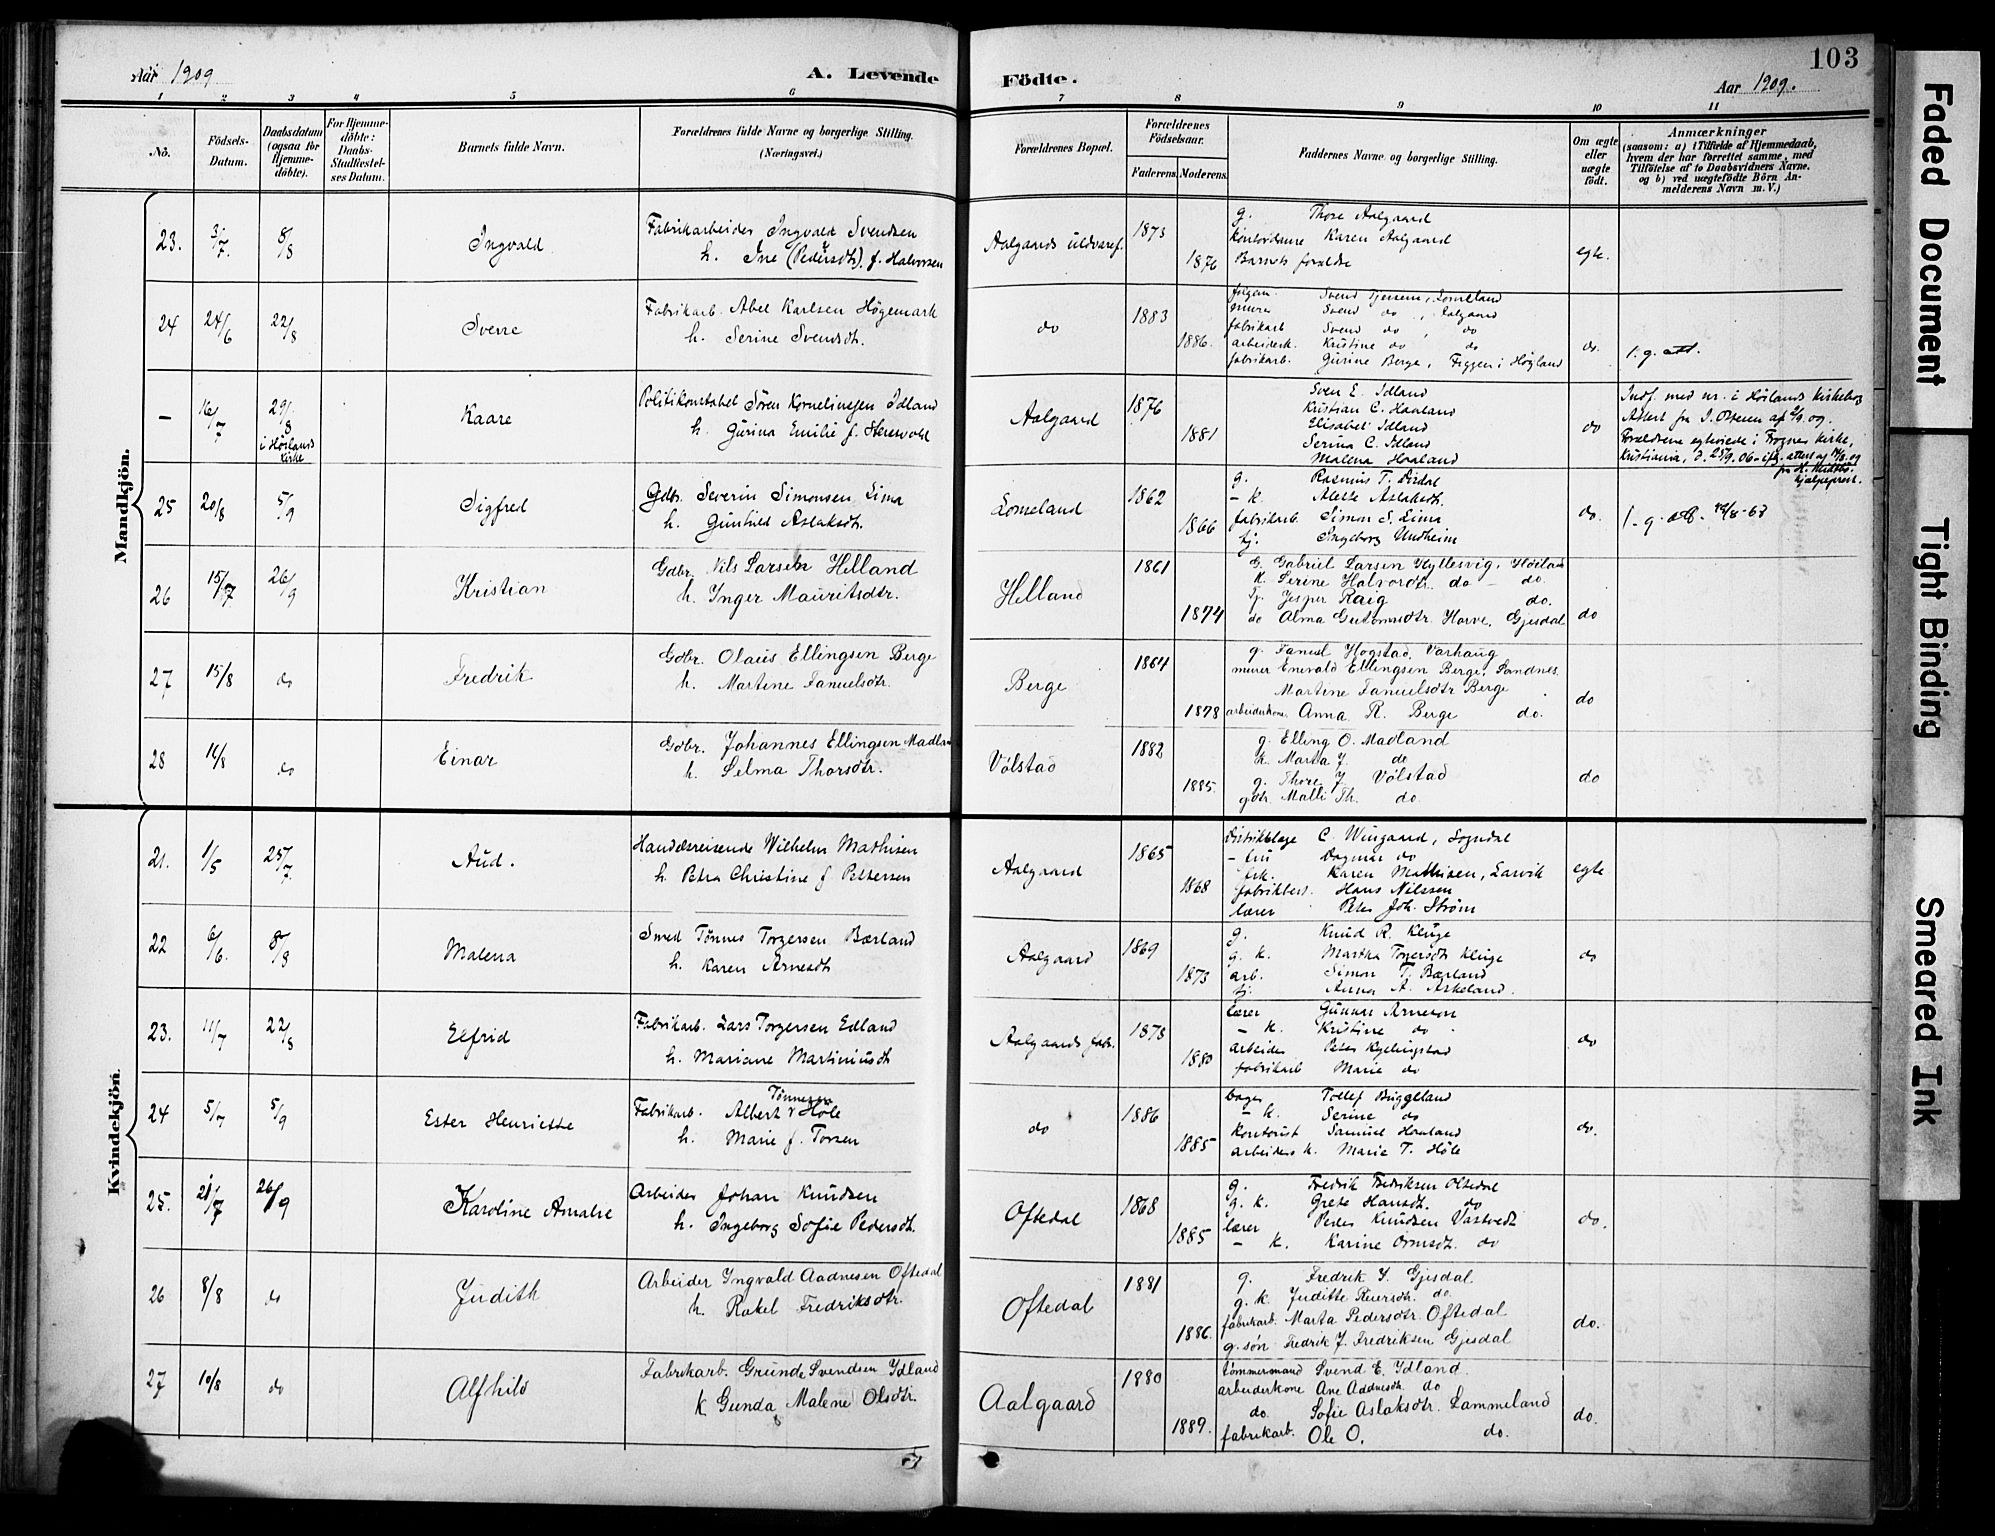 Aar 1909
A. Levende
Födte.
Aar 1909.
103
1 2 3 4 5 6 7 8 9 10 11
No.
Födsels-Datum.
Daabsdatum (ogsaa for Hjemme-döbte).
For Hjemme-döbte: Daabs-Stadfæstel-ses Datum.
Barnets fulde Navn.
Forældrenes fulde Navne og borgerlige Stilling. (Næringsvei.)
Forældrenes Bopæl.
Forældrenes Födselsaar.
Faderens. Moderens.
Faddernes Navne og borgerlige Stilling.
Om ægte eller uægte födt.
Anmærkninger
(saasom: a) i Tilfælde af Hjemmedaab, hvem der har forrettet samme, med Tilföielse af to Daabsvidners Navne. og b) ved uægtefödte Börn Anmelderens Navn m. V.)
Mandkjön.
23. 3/7. 8/8 Ingvald
Fabrikarbeider Ingvald Svendsen
h. Ine (Pedersdt). f. Halvorsen
Aalgaards uldvaref. 1873 1876
g. Thore Aalgaard
Karen Aalgaard
Barnets forældre
egte.
24 24/6 22/8 Sverre
Fabrikarb. Abel Karlsen Högemark
h. Serine Svendsdt.
do 1883 1886.
Svend Tjersen, Lomeland
murer Svend do, Aalgaard
fabrikarb Svend do do
arbeiderk. Kristine do do
fabrikarb. Gurine Berge, Figgen i Höyland
do.
- 16/7 29/8 i Höilands Kirke Kaare
Politikonstabel Sören Kornelinssen Idland
h. Gurina Emilie f.
Aalgaard 1876 1881
Sven E. Idland
Kristian C. Haaland
Elisabet Idland
Serina C. Idland
Malena Haaland
do
Indf. med nr. i Höilands kirkebog
Forældrene egteviede i Frogner Kirke,
Kristiania, d. 25/9. 06
hjælpeprest.
25 20/8 5/9 Sigfred
Gdbr. Severin Simonsen Lima
h. Gunhild Aslaksdt.
Lomeland 1862 1866
g. Rasmus T. Dirdal
- k. Aleste Aslaksdt.
fabrikarb. Simon S. Lima
tj. Ingeborg Undheim
do.
26 15/7 26/9 Kristian
Gdbr. Nils Larsen Helland
h. Inger Mauritsdtr.
Helland 1861 1874
G. Gabriel Larsen Hyllesvig, Höiland
K. Serine Halvordtr. do - do.
Tj. Jesper Raig do.
do Alma Gutormsdtr. Harve, Gjesdal
do
27 15/8 do Fredrik
Gdbr. Olaus Ellingsen Berge
h. Martine Tanuelsdtr.
Berge 1864 1878
g. Tanuel Hogstad, Varhaug
murer Enevald Ellingsen Berge, Sandnes.
Martine Fanuelsdtr Berge
arbeiderkone Anna R. Berge do.
do
28 14/8 do Einar
Gdbr. Johannes Ellingsen Madland
h. Selma Thorsdtr.
Völstad 1882 1885.
g. Elling O. Madland
k. Marta J. do
g. Thore J. Völstad
gdtr. Malli Th. do.
do
Kvindekjön.
21. 1/5 25/7 Aud.
Handelsreisende Wilhelm Mathisen
h. Petra Christine f Pettersen
Aalgaard 1865 1868
Distriktslæge C. Wingaard, Sogndal
- fru Dagmar do
frk. Karen Mathisen, Larvik
Hans Nilssen
lærer Peter Joh. Ström
egte
22 6/6. 8/8 Malena
Smed Tönnes Torgersen Bærland
h. Karen Arnesdt
Aalgaard 1869 1873
g. Knud R. Kluge
g. k. Martha Torgersdt Kluge
arb. Simon T. Bærland
tj. Anna A. Askeland.
do
23. 11/7 22/8 Elfrid
Fabrikarb. Lars Torgersen Edland
h. Mariane Martiniusdt
Aalgaards fabr. 1878 1880
lærer Gunnar Arneson
- k. Kristine do
arbeider Peter Kyllingstad
fabrikarb Marie do
do
24 5/7 5/9 Ester Henriette
Fabrikarb. Albert Tönnesen Höle
h. Marie f. Torsen
do 1886 1885
bager Tollef Buggeland
- k. Serine do
kontorist Samuel Haaland
arbeiders k. Marie T. Höle
do.
25. 21/7 26/9 Karoline Amalie
Arbeider Johan Knudsen
h. Ingeborg Sofie Pedersdt.
Oftedal 1868 1885
g. Fredrik Fredriksen Oltedal
g. k. Grete Hansdt. do
lærer Peder Knudsen Vastvedt
- k. Karine Ormsdt. do
do.
26 8/8 do Judith
Arbeider Ingvald Aadnesen Oftedal
h. Rakel Fredriksdtr.
Oftedal 1881 1886.
g. Fredrik J. Gjesdal
g. k. Juditte do.
fabrikarb. Marta Pedersdtr. Oftedal
g. sön Fredrik J. Fredriksen Gjesdal
do.
27 10/8 do Alfhild
Fabrikarb. Grunde Svendsen Ydland
k Gunda Malene Olsdtr.
Aalgaard 1880 1889.
tömmermand Svend E. Ydland.
arbeiderkone Ane Aadnesdt do
do. Sofie Aslaksdtr. Lammeland
fabrikarb. Ole O. do.
do.
Faded Document
Tight Binding
Smeared Ink